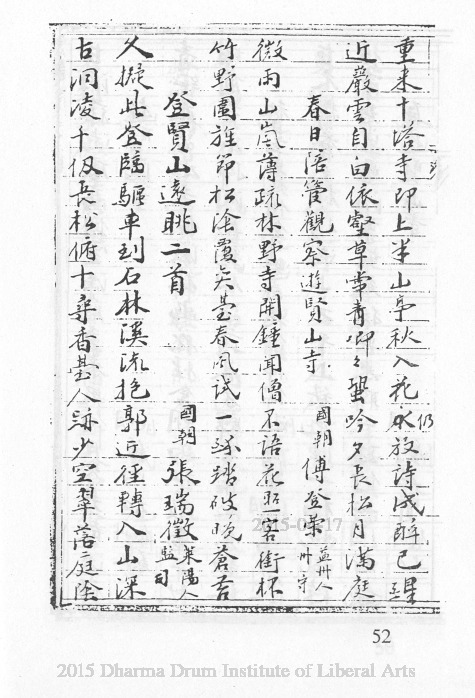 重来十塔寺即上半山亭秋入花仍放詩成醉已醒
近巖雲自白依壑草常青唧々蛩吟夕長松月滿庭
春日陪管觀察遊賢山寺 國朝傅登榮 益州人 州守
微雨山嵐薄疎林野寺開鍾聞僧不語花照客銜杯
竹野圍旌節松陰覆矣臺春風試一眺踏破晚蒼苔
登賢山遠眺二首 國朝張瑞徵 萊陽人 監司
久擬此登臨驅車到石林溪流抱郭近徑轉入山深
古洞凌千仭長松俯十尋香臺人跡少空翠落庭陰
2015-03-17
52
2015 Dharma Drum Institute of Liberal Arts